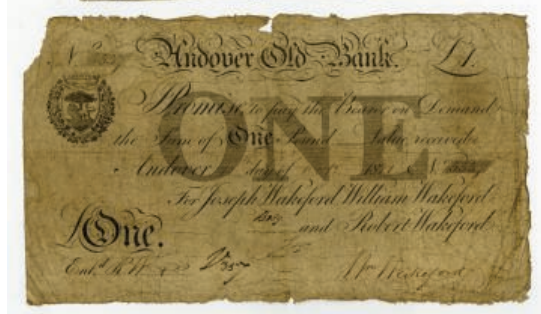 No Andover Old Bank. £1.
I Promise to pay the Bearer on Demand
the Sum of One Pound Value received
Andover day of
ONE
For Joseph Wakeford William Wakeford
and Robert Wakeford
£One.
Entd. R W
Wm Wakeford